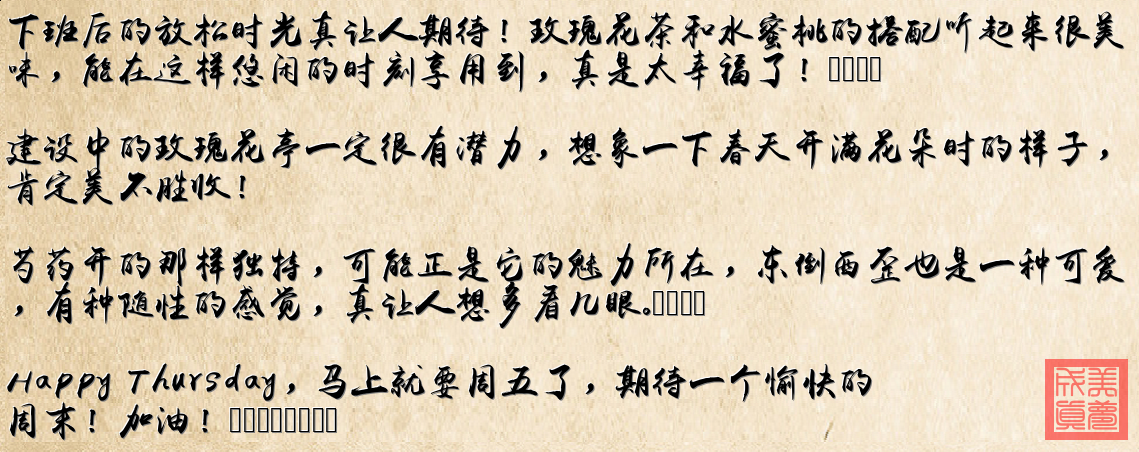 下班后的放松时光真让人期待！玫瑰花茶和水蜜桃的搭配听起来很美
味，能在这样悠闲的时刻享用到，真是太幸福了！
建设中的玫瑰花亭一定很有潜力，想象一下春天开满花朵时的样子，
肯定美不胜收！
芍药开的那样独特，可能正是它的魅力所在，东倒西歪也是一种可爱
，有种随性的感觉，真让人想多看几眼。
Happy Thursday，马上就要周五了，期待一个愉快的
周末！加油！
美梦成真